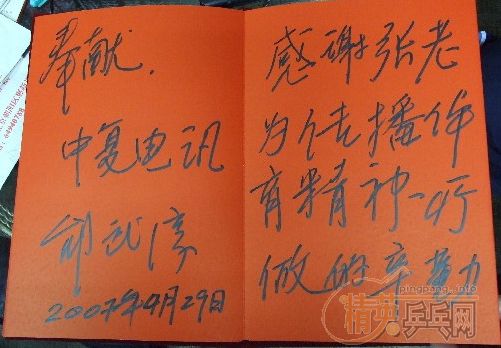 感谢张老
为传播体
育精神所
做的辛勤
奉献.
中复电讯
邰武淳
2007年4月29日
精英乒乓网